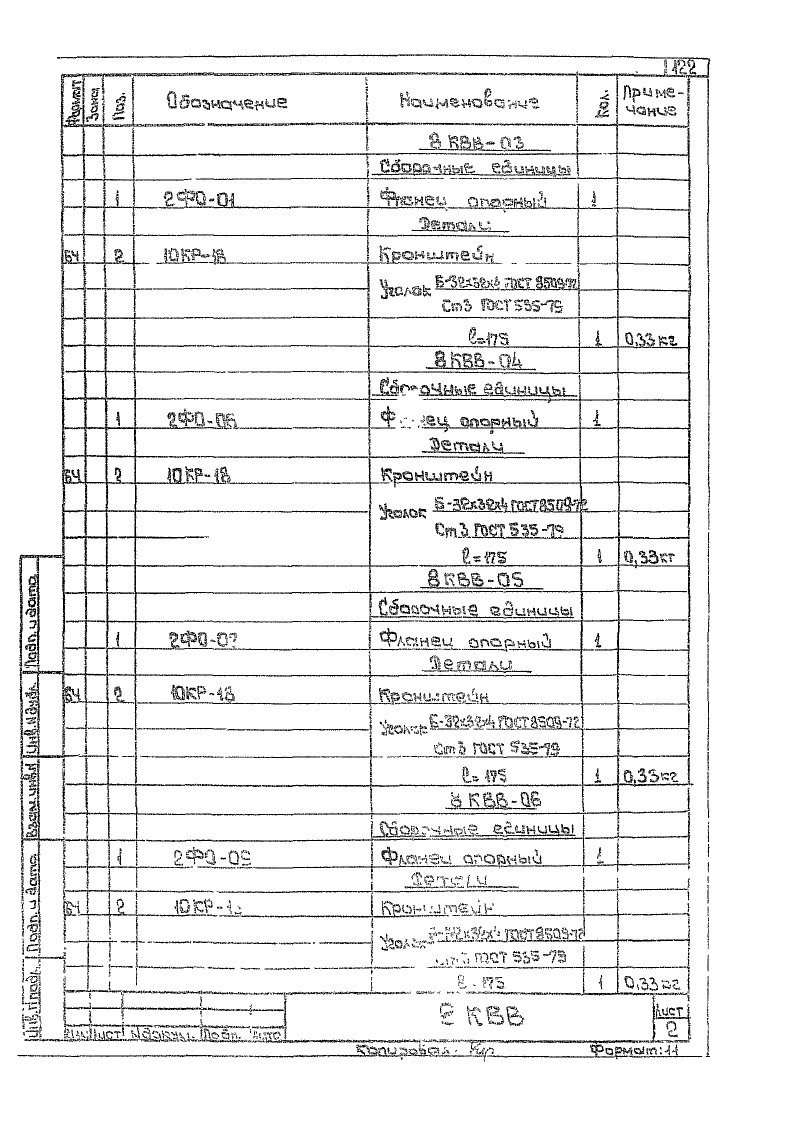 122
Формат Зона Поз. Обозначение Наименование Кол. Приме-
чание
8 КВВ-03
Сборочные единицы
1 2ФО-01 Фланец опорный 1
Детали
БЧ 2 10КР-18 Кронштейн
Уголок Б-32х32х4 ГОСТ 8509-72
Ст3 ГОСТ 535-79
ℓ=175 1 0,33кг
8КВВ-04
Сборочные единицы
1 2ФО-06 Фланец опорный 1
Детали
БЧ 2 10КР-18 Кронштейн
Уголок Б-32х32х4 ГОСТ 8509-72
Ст3 ГОСТ 535-79
ℓ=175 1 0,33кг
8КВВ-05
Сборочные единицы
1 2ФО-07 Фланец опорный 1
Детали
БЧ 2 10КР-18 Кронштейн
Уголок Б-32х32х4 ГОСТ 8509-72
Ст3 ГОСТ 535-79
ℓ=175 1 0,33кг
8 КВВ-06
Сборочные единицы
1 Фланец опорный 1
Детали
БЧ 2 Кронштейн
Уголок Б-32х32х4 ГОСТ 8509-72
Ст3 ГОСТ 535-79
ℓ=175 1 0,33кг
Инв.№подл. Подп. и дата Взам.инв.№ Инв.№дубл. Подп. и дата
8 КВВ
Лист
2
Изм Лист №докум. Подп. Дата
Копировал: Формат: 11